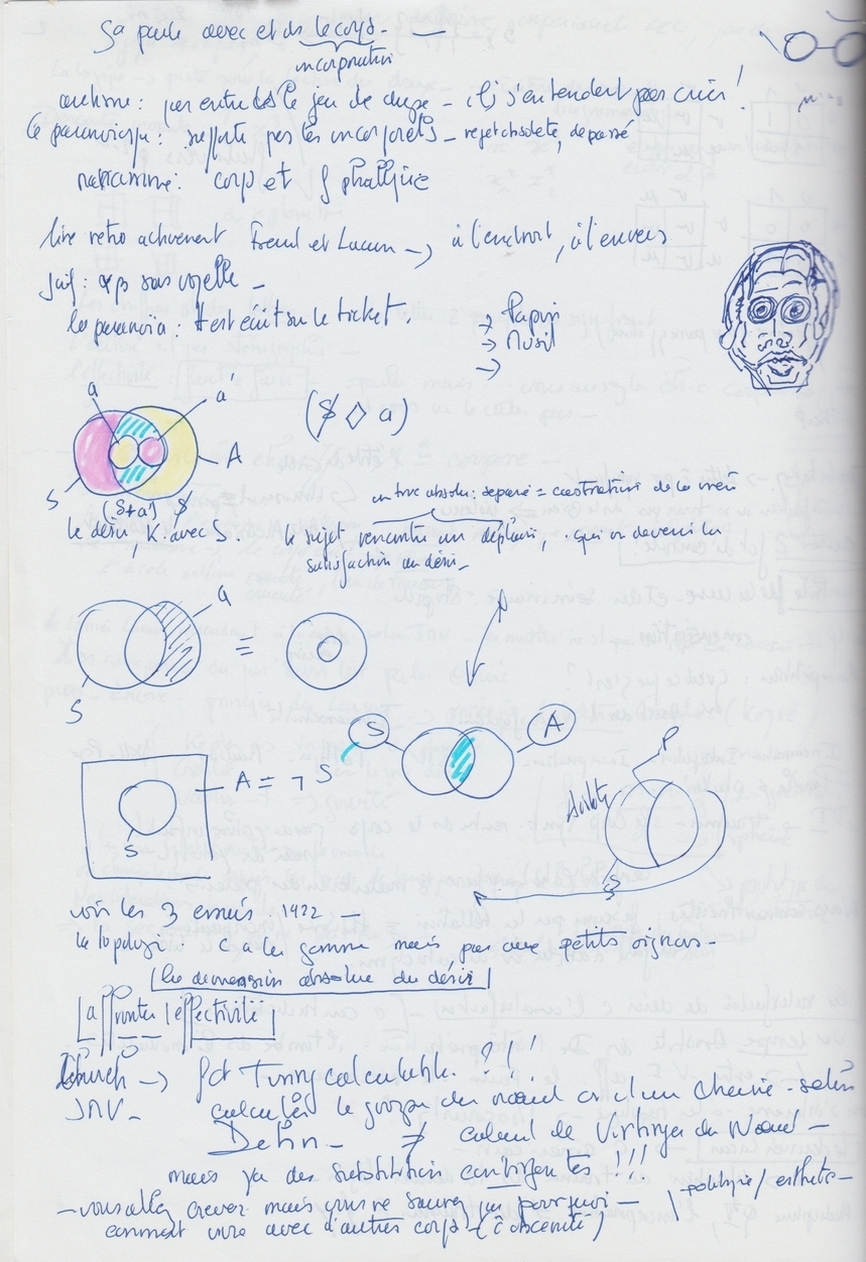 Ça parle avec et ds le corps. —
incorporation
autisme : pas entrer ds le jeu de dupe - ils s'entendent pas crier !
le paranoïaque : supporte pas les incorporels - rejet obsolète, dépassé
narcissisme : corps et f phallique
lire rétroactivement Freud et Lacan → à l'endroit, à l'envers
juif : sans voyelle -
la paranoïa : t'est écrit sur le ticket.
→ Papini
→ Musil
→
a a'
($ ◇ a)
S A
(S+a') $
le désir, K. avec S.
absolu : séparé = castration de la mère
le sujet rencontre un déplaisir, qui va devenir la
satisfaction du désir -
a
S
=
S A
A = ¬ S
S
P
S
voir les 3 essais . 1922 —
la topologie . c a la gomme mais pas aux petits oignons -
la dimension absolue du désir
affronter l'effectivité
Church → fct Turing calculable. ?!!
JMV - calculer le groupe du nœud ou d'un chaîne - selon
Dehn - ≠ calcul de Wirtinger du Nœud -
mais ya des substitution contingentes !!!
- vous allez crever mais vous ne saurez pas pourquoi — politique / esthète -
comment vivre avec d'autres corps - (l'obscénité)